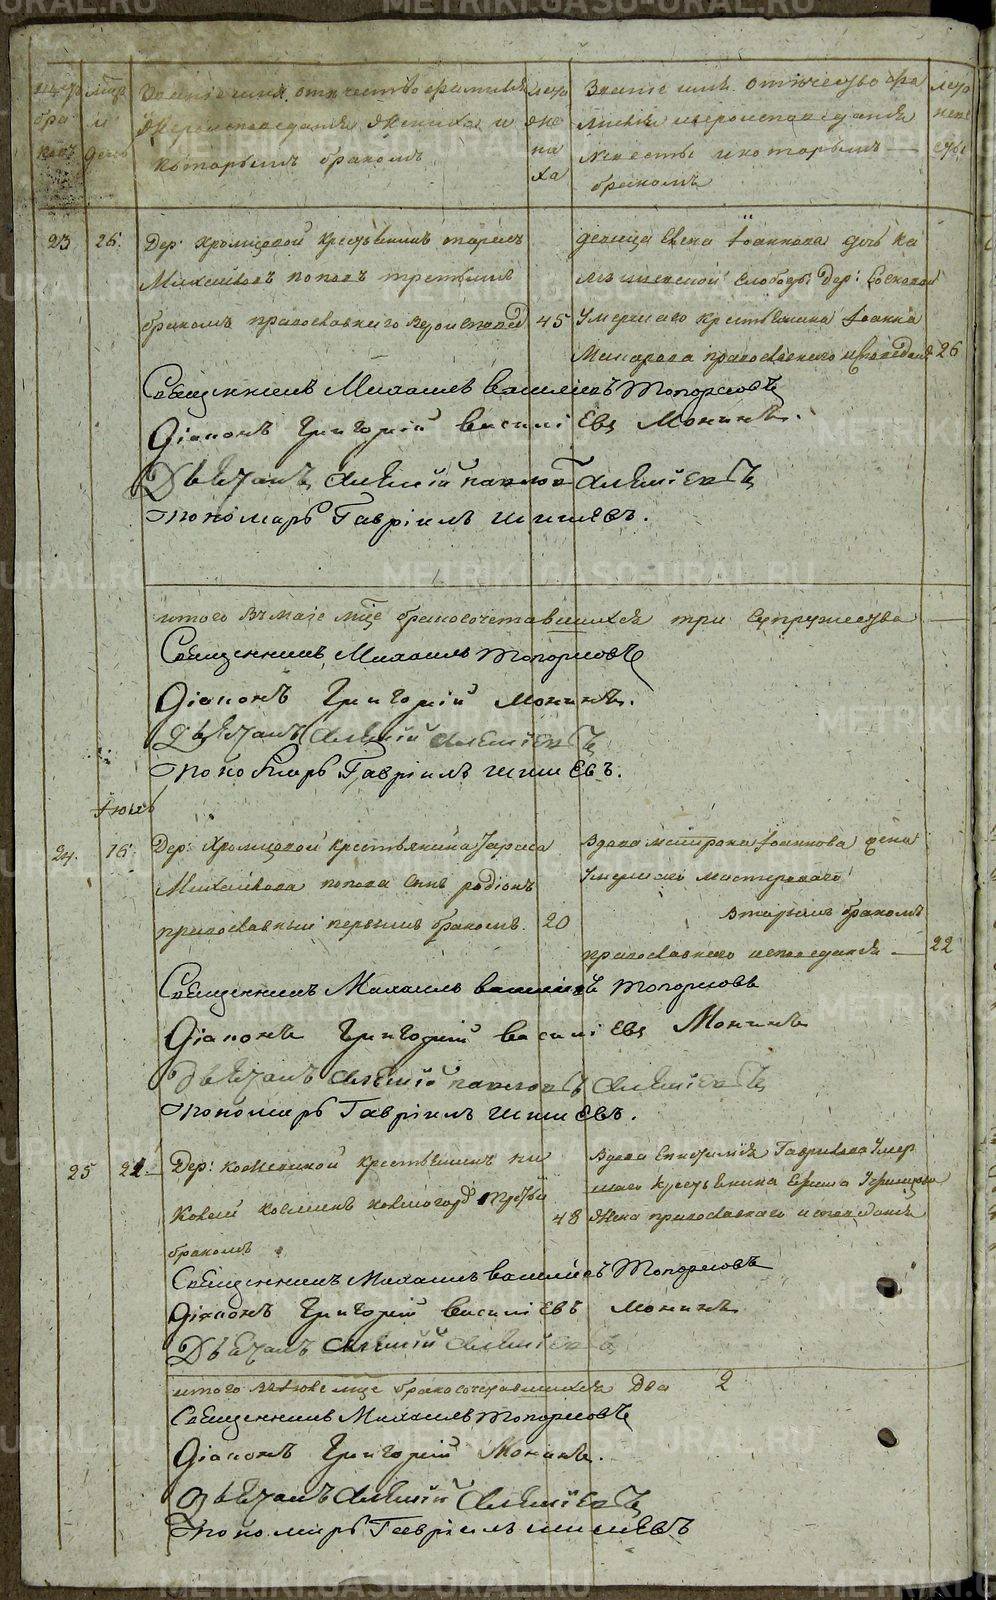 METRIKI.GASO-URAL.RU
бра и вероисповеданія жениха и
браковъ день которымъ бракомъ
Званіе имя отчество фа
милія и вероисповеданія
невесты и которымъ
бракомъ
23 26. Дер: Хромцовой крестьянинъ тарасъ
Михайловъ поповъ третьимъ
бракомъ православнаго вероисповед 45
девица Іоаннова дочь
слободы Дер:
Умершаго крестьянина Іоанна
православнаго исповеданія 26
Священникъ Михаилъ Васильевъ Топорковъ
Діаконъ Григорій Василіевъ Монинъ.
Дьячокъ Алексій Павловъ Алексіевъ
Пономарь Гавріилъ Шишевъ.
итого въ маіе мце бракосочетавшихся три супружества
Священникъ Михаилъ Топорковъ
Діаконъ Григорій Монинъ.
Дьячокъ Алексій Алексіевъ
Пономарь Гавріилъ Шишевъ.
Іюнь
24. 16. Дер: Хромцовой крестьянина Тараса
Михайлова попова сынъ родіонъ
православный первымъ бракомъ. 20
Вдова матрона Іоаннова жена
Умершаго мастероваго
Вторымъ бракомъ
православнаго исповеданія 22
Священникъ Михаилъ Васильевъ Топорковъ
Діаконъ Григорій Василіевъ Монинъ
Дьячокъ Алексій Павловъ Алексіевъ
Пономарь Гавріилъ Шишевъ.
25 21. Дер: крестьянинъ ни
колай
бракомъ 48
Вдова Гаврилова Умер
шаго крестьянина
жена православнаго исповеданія
Священникъ Михаилъ Васильевъ Топорковъ
Діаконъ Григорій Василіевъ Монинъ
Дьячокъ Алексій Алексіевъ
итого въ Іюне мце бракосочетавшихся Два 2
Священникъ Михаилъ Топорковъ
Діаконъ Григорій Монинъ.
Дьячокъ Алексій Алексіевъ
Пономарь Гавріилъ Шишевъ